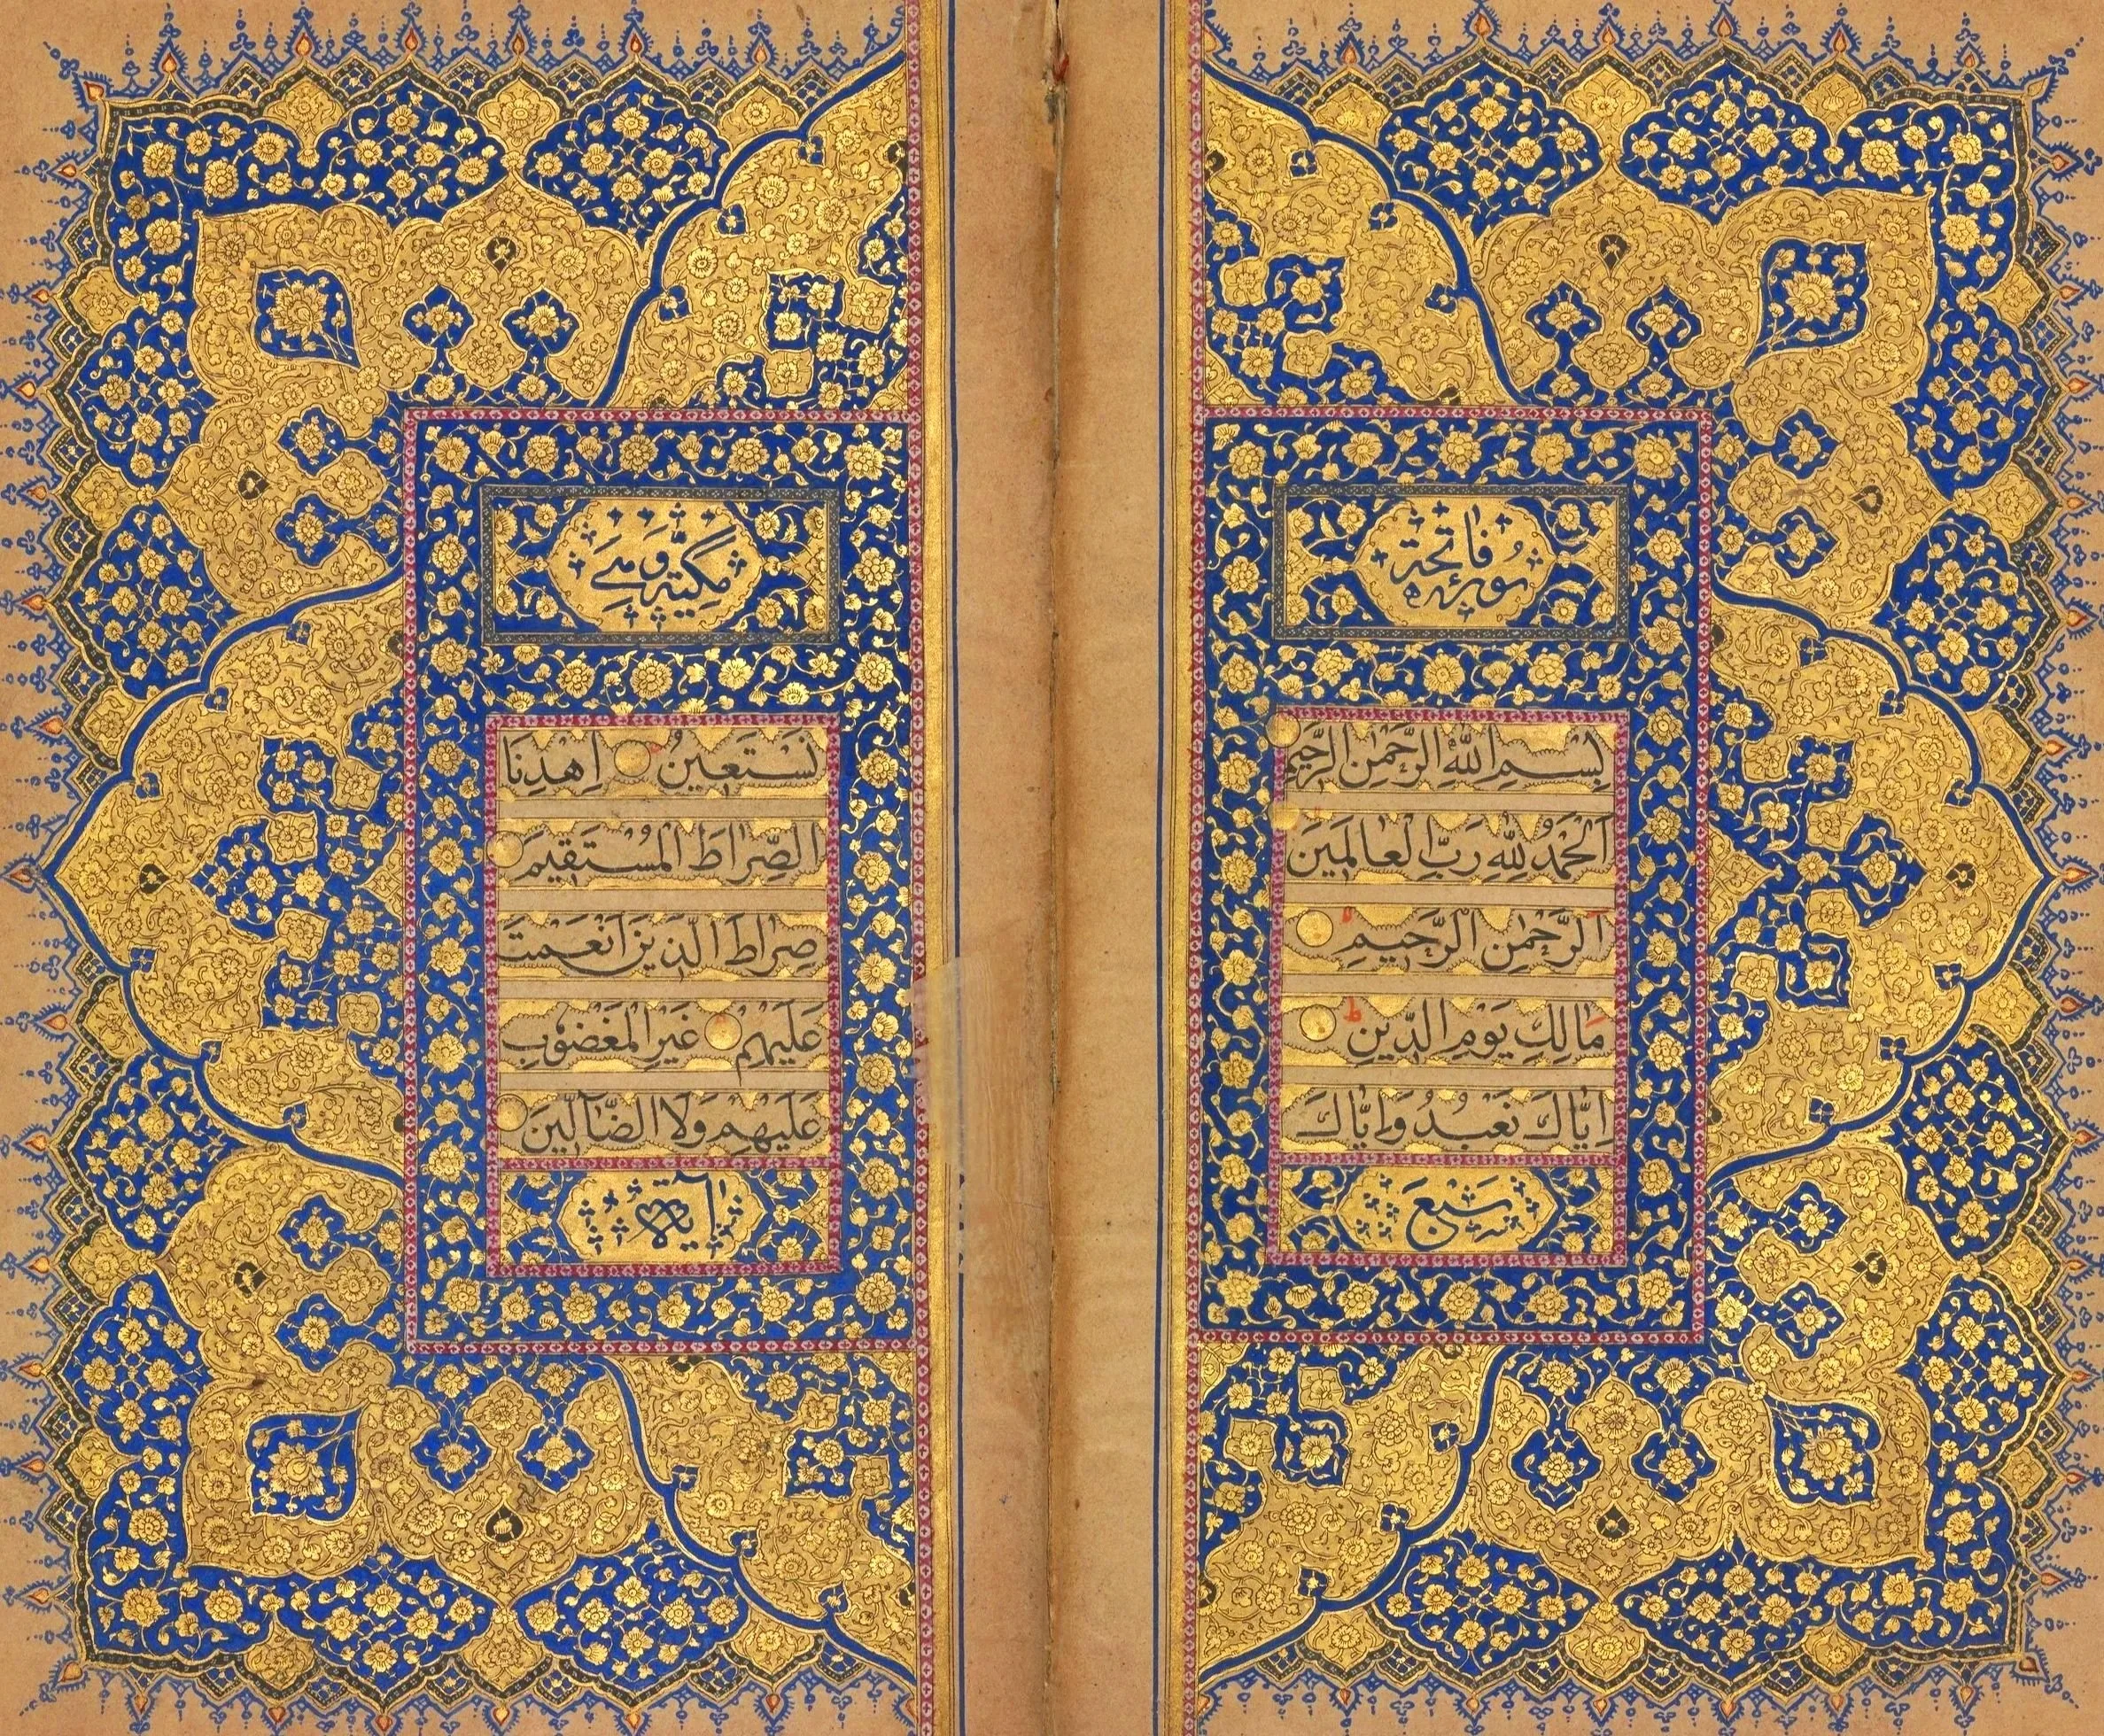 سُورَة فَاتِحَة
بِسْمِ اللّهِ الرَّحْمٰنِ الرَّحِيمِ
اَلْحَمْدُ لِلّهِ رَبِّ الْعَالَمِينَ
اَلرَّحْمٰنِ الرَّحِيمِ
مَالِكِ يَوْمِ الدِّينِ
اِيَّاكَ نَعْبُدُ وَاِيَّاكَ
سَبْعَ
مَكِّيَّة وَهِيَ
نَسْتَعِينُ اِهْدِنَا
الصِّرَاطَ الْمُسْتَقِيمَ
صِرَاطَ الَّذِينَ اَنْعَمْتَ
عَلَيْهِمْ غَيْرِ الْمَغْضُوبِ
عَلَيْهِمْ وَلَا الضَّآلِّينَ
آيَات